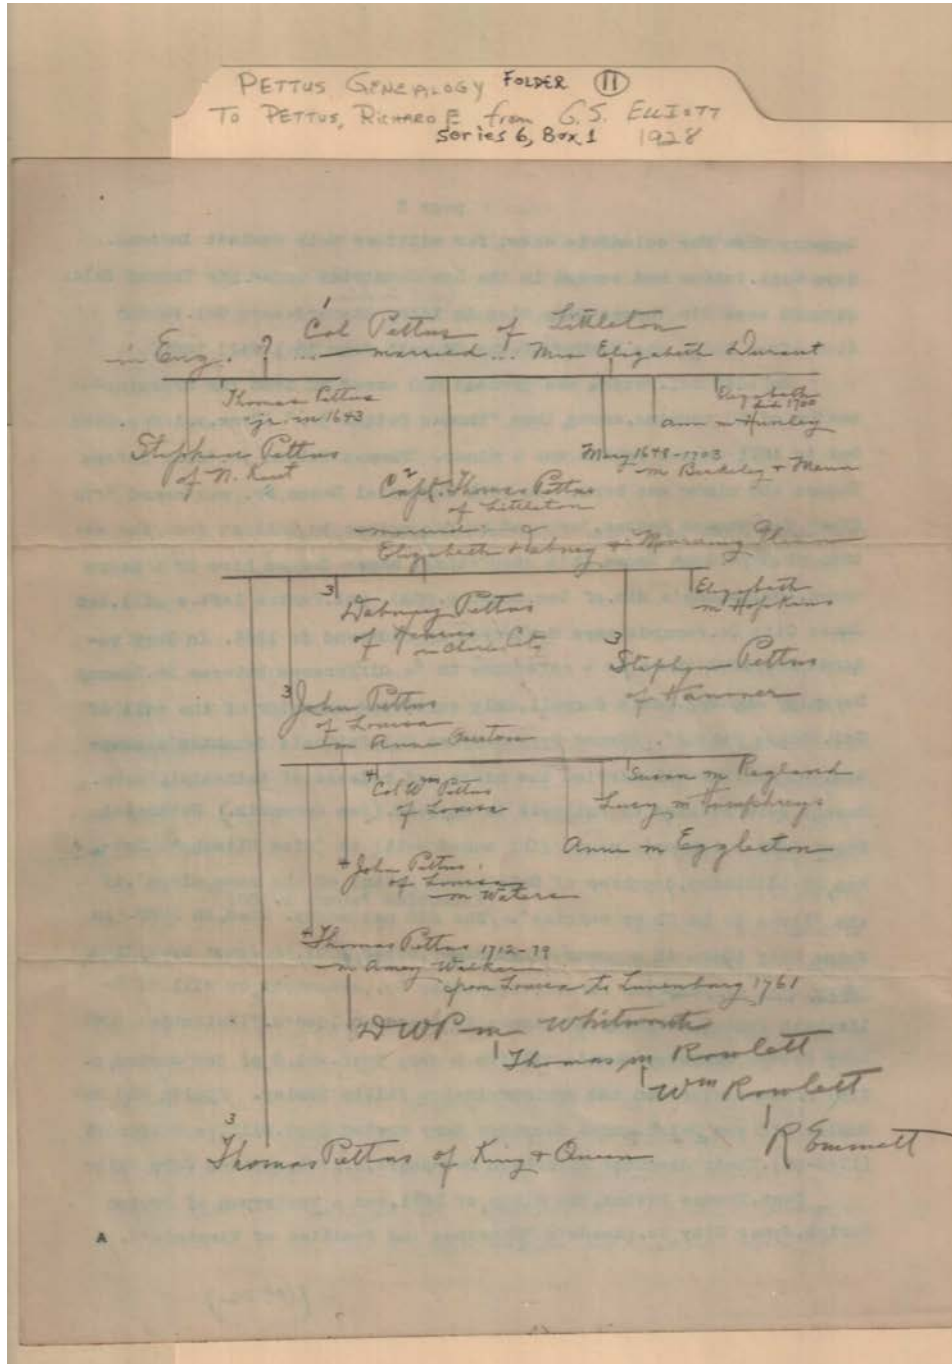 PETTUS GENEALOGY FOLDER 11
TO PETTUS, RICHARD E from G.S. ELLIOTT
Series 6, Box 1 1928
1
Col Pettus of Littleton
in Eng. ? ... married... Mrs Elizabeth Durant
Thomas Pettus
jr. in 1643
Elizabeth
1700
Ann m Hunley
Stephen Pettus
of N. Kent
Mary 1648-1703
m Berkeley + Mann
2
Capt. Thomas Pettus
of Littleton
married
Elizabeth Dabney + Mourning
3
Dabney Pettus
of Hanover
Elizabeth
m Hopkins
3
Stephen Pettus
of Hanover
3
John Pettus
of Louisa
m Anne Overton
4
Col Wm Pettus
of Louisa
Susan m Ragland
Lucy m Humphreys
Anne m Eggleston
4
John Pettus
of Louisa
m Waters
4
Thomas Pettus 1712-79
m Amey Walker
from Louisa to Lunenburg 1761
DWP m Whitworth
Thomas m Rowlett
Wm Rowlett
R Emmett
3
Thomas Pettus of King + Queen
A